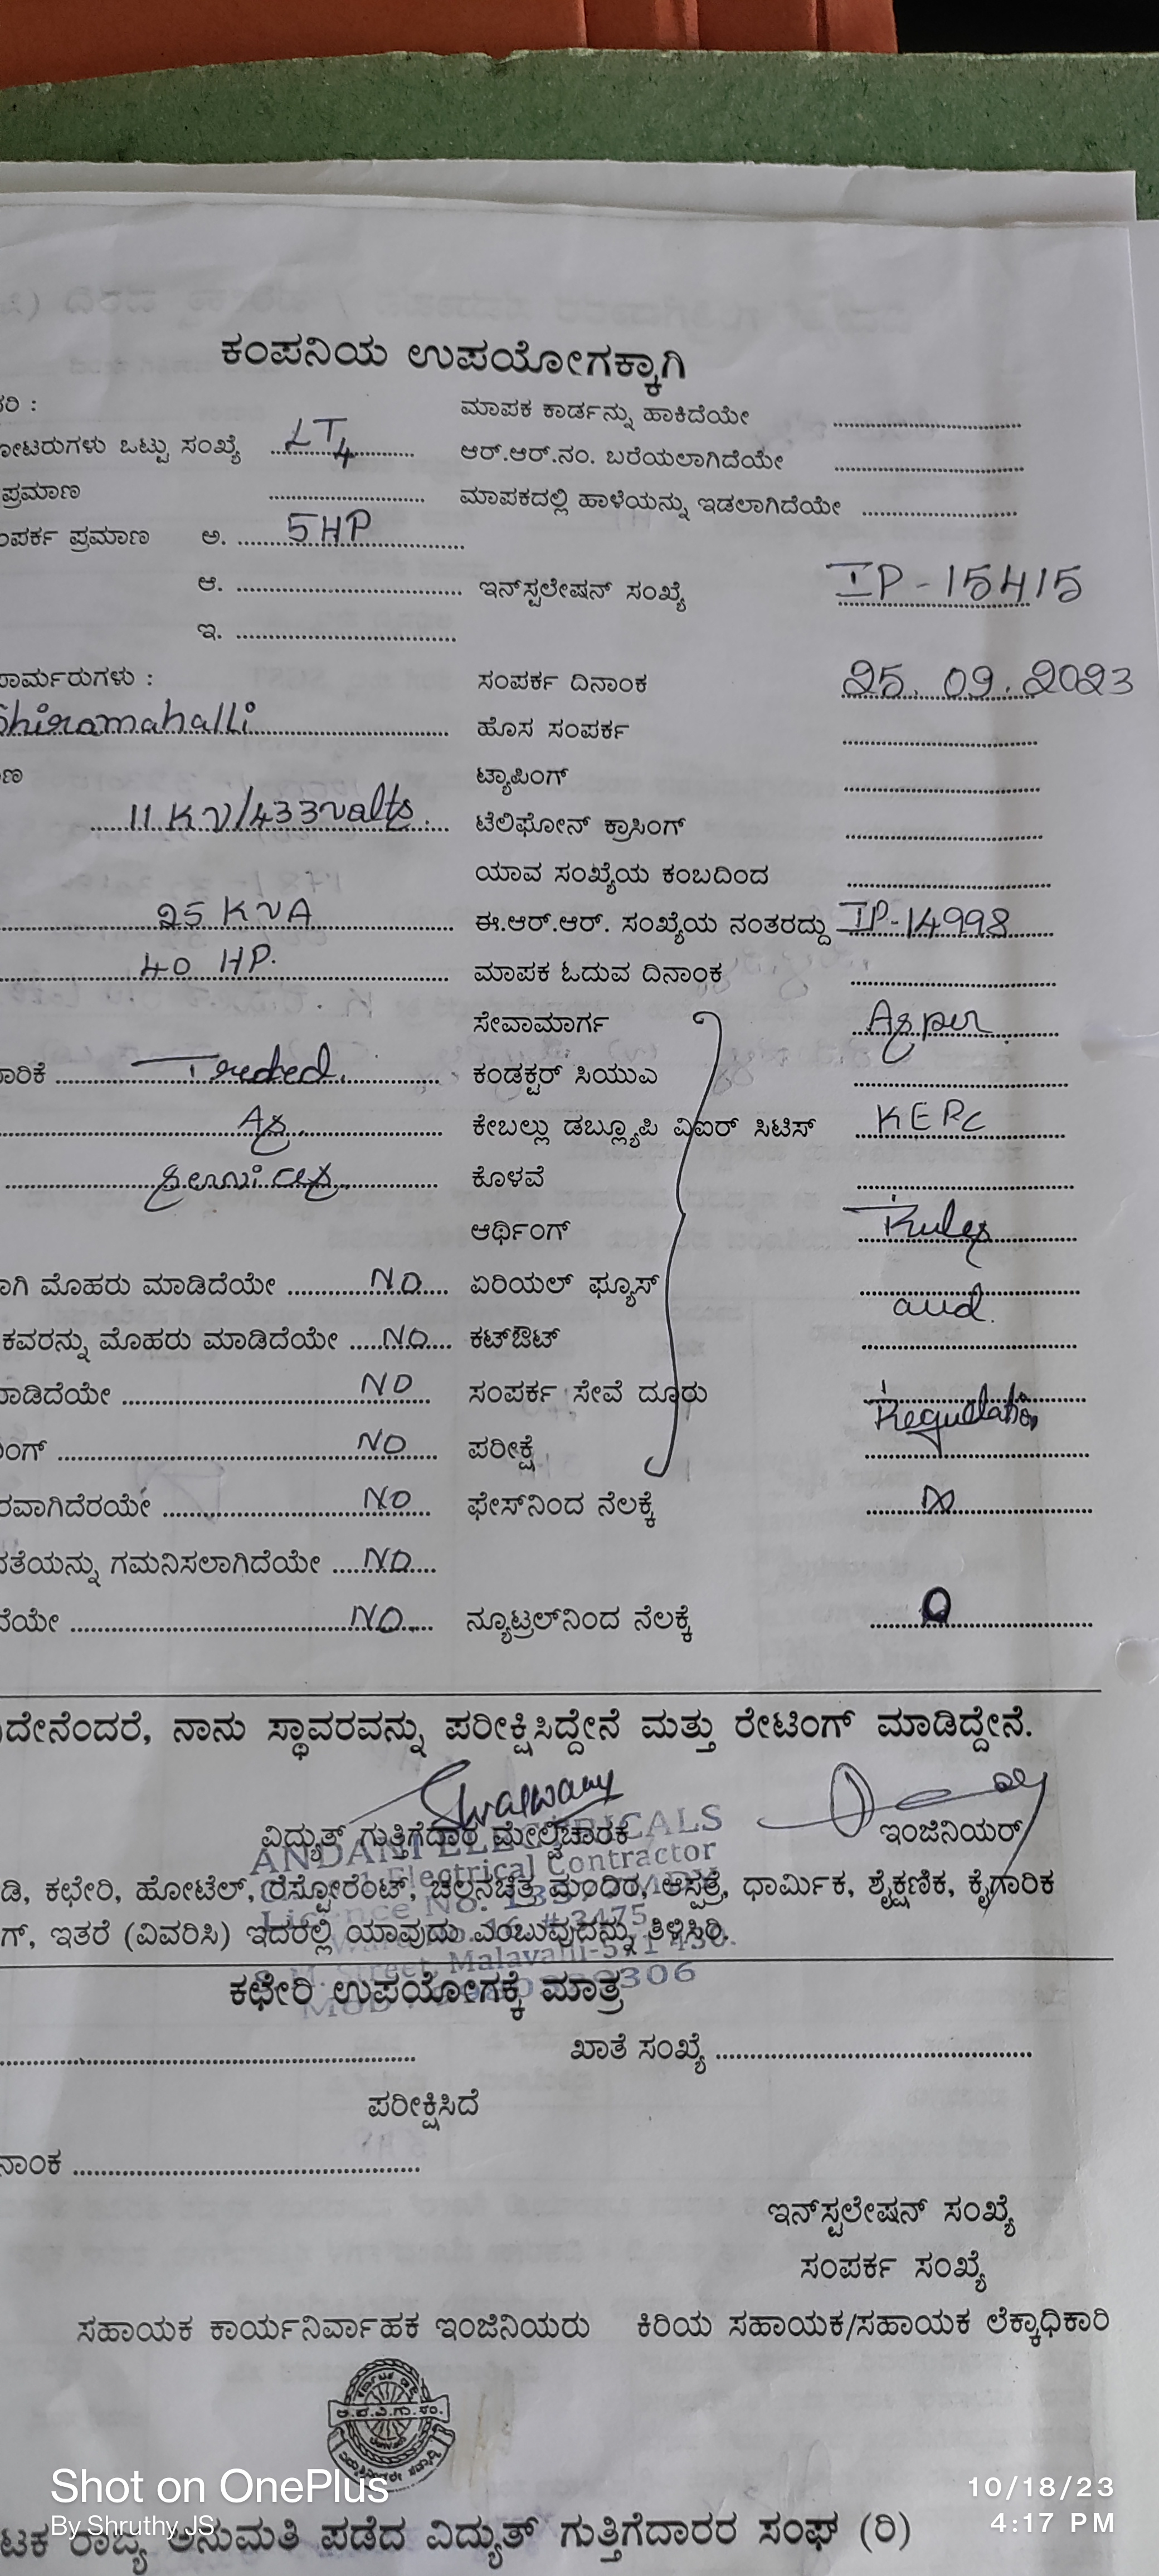 ಕಂಪನಿಯ ಉಪಯೋಗಕ್ಕಾಗಿ
ರಿ : ಮಾಪಕ ಕಾರ್ಡನ್ನು ಹಾಕಿದೆಯೇ
ೋಟರುಗಳು ಒಟ್ಟು ಸಂಖ್ಯೆ LT4 ಆರ್.ಆರ್.ನಂ. ಬರೆಯಲಾಗಿದೆಯೇ
ಪ್ರಮಾಣ ಮಾಪಕದಲ್ಲಿ ಹಾಳೆಯನ್ನು ಇಡಲಾಗಿದೆಯೇ
ಂಪರ್ಕ ಪ್ರಮಾಣ ಅ. 5HP
ಆ. ಇನ್‌ಸ್ಟಲೇಷನ್ ಸಂಖ್ಯೆ IP-15415
ಇ.
ಾರ್ಮರುಗಳು : ಸಂಪರ್ಕ ದಿನಾಂಕ 25.09.2023
Shiramahalli ಹೊಸ ಸಂಪರ್ಕ
ಣ ಟ್ಯಾಪಿಂಗ್
11 KV/433volts. ಟೆಲಿಫೋನ್ ಕ್ರಾಸಿಂಗ್
ಯಾವ ಸಂಖ್ಯೆಯ ಕಂಬದಿಂದ
25 KVA ಈ.ಆರ್.ಆರ್. ಸಂಖ್ಯೆಯ ನಂತರದ್ದು IP-14998
40 HP. ಮಾಪಕ ಓದುವ ದಿನಾಂಕ
ಸೇವಾಮಾರ್ಗ As per
ಾರಿಕೆ ಕಂಡಕ್ಟರ್ ಸಿಯುಎ
As. ಕೇಬಲ್ಲು ಡಬ್ಲ್ಯೂಪಿ ವಿಐರ್ ಸಿಟಿಸ್ KERC
services. ಕೊಳವೆ
ಆರ್ಥಿಂಗ್ Rules
ಾಗಿ ಮೊಹರು ಮಾಡಿದೆಯೇ NO ಏರಿಯಲ್ ಫ್ಯೂಸ್ and.
ಕವರನ್ನು ಮೊಹರು ಮಾಡಿದೆಯೇ NO ಕಟ್‌ಔಟ್
ಾಡಿದೆಯೇ NO ಸಂಪರ್ಕ ಸೇವೆ ದೂರು Regulation
ಂಗ್ NO ಪರೀಕ್ಷೆ
ರವಾಗಿದೆರಯೇ NO ಫೇಸ್‌ನಿಂದ ನೆಲಕ್ಕೆ
ತೆಯನ್ನು ಗಮನಿಸಲಾಗಿದೆಯೇ NO
ೆಯೇ NO. ನ್ಯೂಟ್ರಲ್‌ನಿಂದ ನೆಲಕ್ಕೆ
ದೇನೆಂದರೆ, ನಾನು ಸ್ಥಾವರವನ್ನು ಪರೀಕ್ಷಿಸಿದ್ದೇನೆ ಮತ್ತು ರೇಟಿಂಗ್ ಮಾಡಿದ್ದೇನೆ.
ವಿದ್ಯುತ್ ಗುತ್ತಿಗೆದಾರ ಮೇಲ್ವಿಚಾರಕ ಇಂಜಿನಿಯರ್
Electrical Contractor
ಡಿ, ಕಛೇರಿ, ಹೋಟೆಲ್, ರೆಸ್ಟೋರೆಂಟ್, ಚಲನಚಿತ್ರ ಮಂದಿರ, ಆಸ್ಪತ್ರೆ, ಧಾರ್ಮಿಕ, ಶೈಕ್ಷಣಿಕ, ಕೈಗಾರಿಕ
ಗ್, ಇತರೆ (ವಿವರಿಸಿ) ಇದರಲ್ಲಿ ಯಾವುದು ಎಂಬುವುದನ್ನು ತಿಳಿಸಿರಿ.
ಕಛೇರಿ ಉಪಯೋಗಕ್ಕೆ ಮಾತ್ರ
ಖಾತೆ ಸಂಖ್ಯೆ
ಪರೀಕ್ಷಿಸಿದೆ
ನಾಂಕ
ಇನ್‌ಸ್ಟಲೇಷನ್ ಸಂಖ್ಯೆ
ಸಂಪರ್ಕ ಸಂಖ್ಯೆ
ಸಹಾಯಕ ಕಾರ್ಯನಿರ್ವಾಹಕ ಇಂಜಿನಿಯರು ಕಿರಿಯ ಸಹಾಯಕ/ಸಹಾಯಕ ಲೆಕ್ಕಾಧಿಕಾರಿ
Shot on OnePlus 10/18/23
By Shruthy JS 4:17 PM
ಟಕ ರಾಜ್ಯ ಅನುಮತಿ ಪಡೆದ ವಿದ್ಯುತ್ ಗುತ್ತಿಗೆದಾರರ ಸಂಘ (ರಿ)